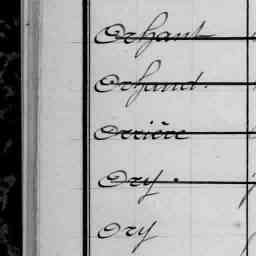 Orhant
Orhand.
Orrière
Ory.
Ory